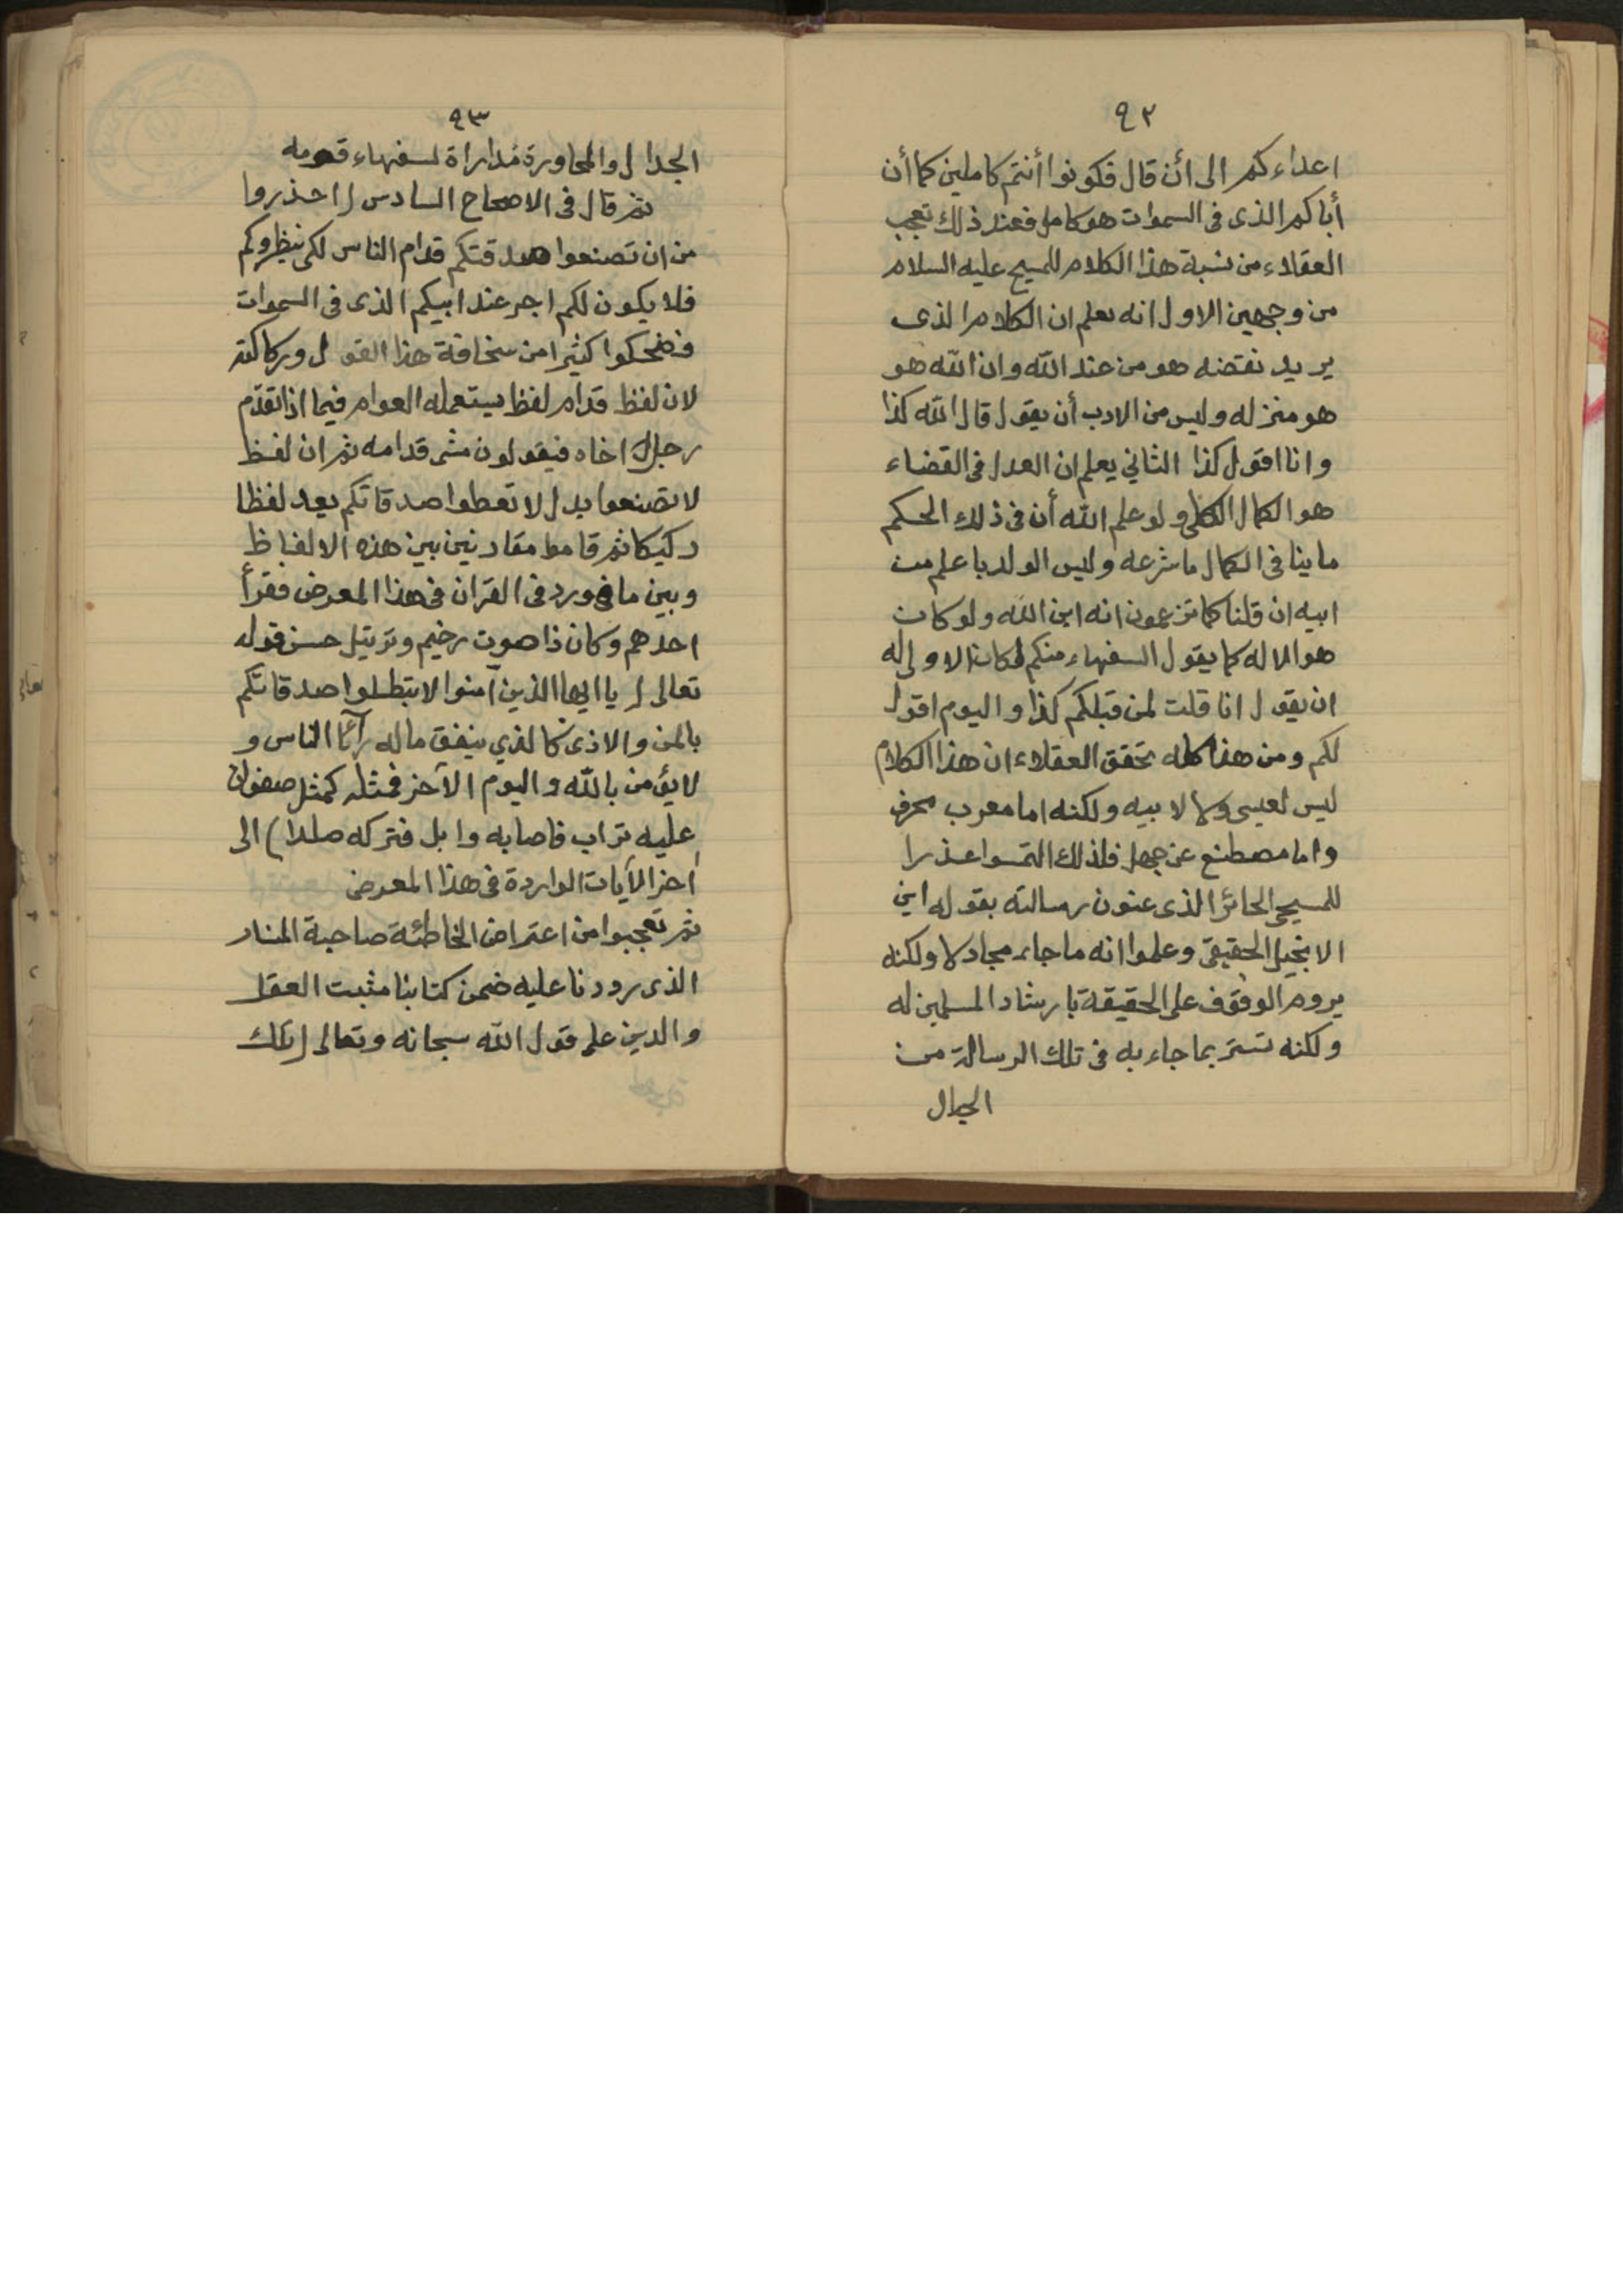 ٩٢
اعداءكم الى أن قال فكونوا أنتم كاملين كما أن
أباكم الذى فى السموات هو كامل فعند ذلك تعجب
العقلاء من نسبة هذا الكلام للمسيح عليه السلام
من وجهين الاول انه يعلم ان الكلام الذى
يريد نقضه هو من عند الله وان الله هو
هو منزله وليس من الادب أن يقول قال الله كذا
وانا اقول كذا الثاني يعلم ان العدل فى القضاء
هو الكمال الكلى ولو علم الله أن فى ذلك الحكم
ما ينافى الكمال ما شرعه وليس الولد باعلم من
ابيه ان قلنا كما تزعمون انه ابن الله ولو كان
هو الاله كما يقول السفهاء منكم لكان الاولى له
ان يقول انا قلت لمن قبلكم كذا واليوم اقول
لكم ومن هذا كله تحقق العقلاء ان هذا الكلام
ليس لعيسى ولا لابيه ولكنه اما معرب محرف
واما مصطنع عن جهل فلذلك التمسوا عذرا
للمسيحى الحائر الذى عنون رسالته بقوله اين
الانجيل الحقيقى وعلموا انه ما جاء مجادلا ولكنه
يروم الوقوف على الحقيقة بارشاد المسلمين له
ولكنه تستر بما جاء به فى تلك الرسالة من
الجدال
٩٣
الجدال والمحاورة مداراة لسفهاء قومه
ثم قال فى الاصحاح السادس ( احذروا
من ان تصنعوا صدقتكم قدام الناس لكى ينظروكم
فلا يكون لكم اجر عند ابيكم الذى فى السموات
فضحكوا كثيرا من سخافة هذا القول وركاكته
لان لفظ قدام لفظ يستعمله العوام فيما اذا تقدم
رجل اخاه فيقولون مشى قدامه ثم ان لفظ
لا تصنعوا بدل لا تعطوا صدقاتكم يعد لفظا
ركيكا ثم قاموا مقارنين بين هذه الالفاظ
وبين ما ورد فى القرآن فى هذا المعرض فقرأ
احدهم وكان ذا صوت رخيم وترتيل حسن قوله
تعالى ( يا ايها الذين آمنوا لا تبطلوا صدقاتكم
بالمن والاذى كالذي ينفق ماله رآئا الناس و
لا يؤمن بالله واليوم الآخر فمثله كمثل صفوان
عليه تراب فاصابه وابل فتركه صلدا ) الى
آخر الآيات الواردة فى هذا المعرض
ثم تعجبوا من اعتراض الخاطئة صاحبة المنار
الذى رددنا عليه ضمن كتابنا مثبت العقل
والدين على قول الله سبحانه وتعالى ( تلك